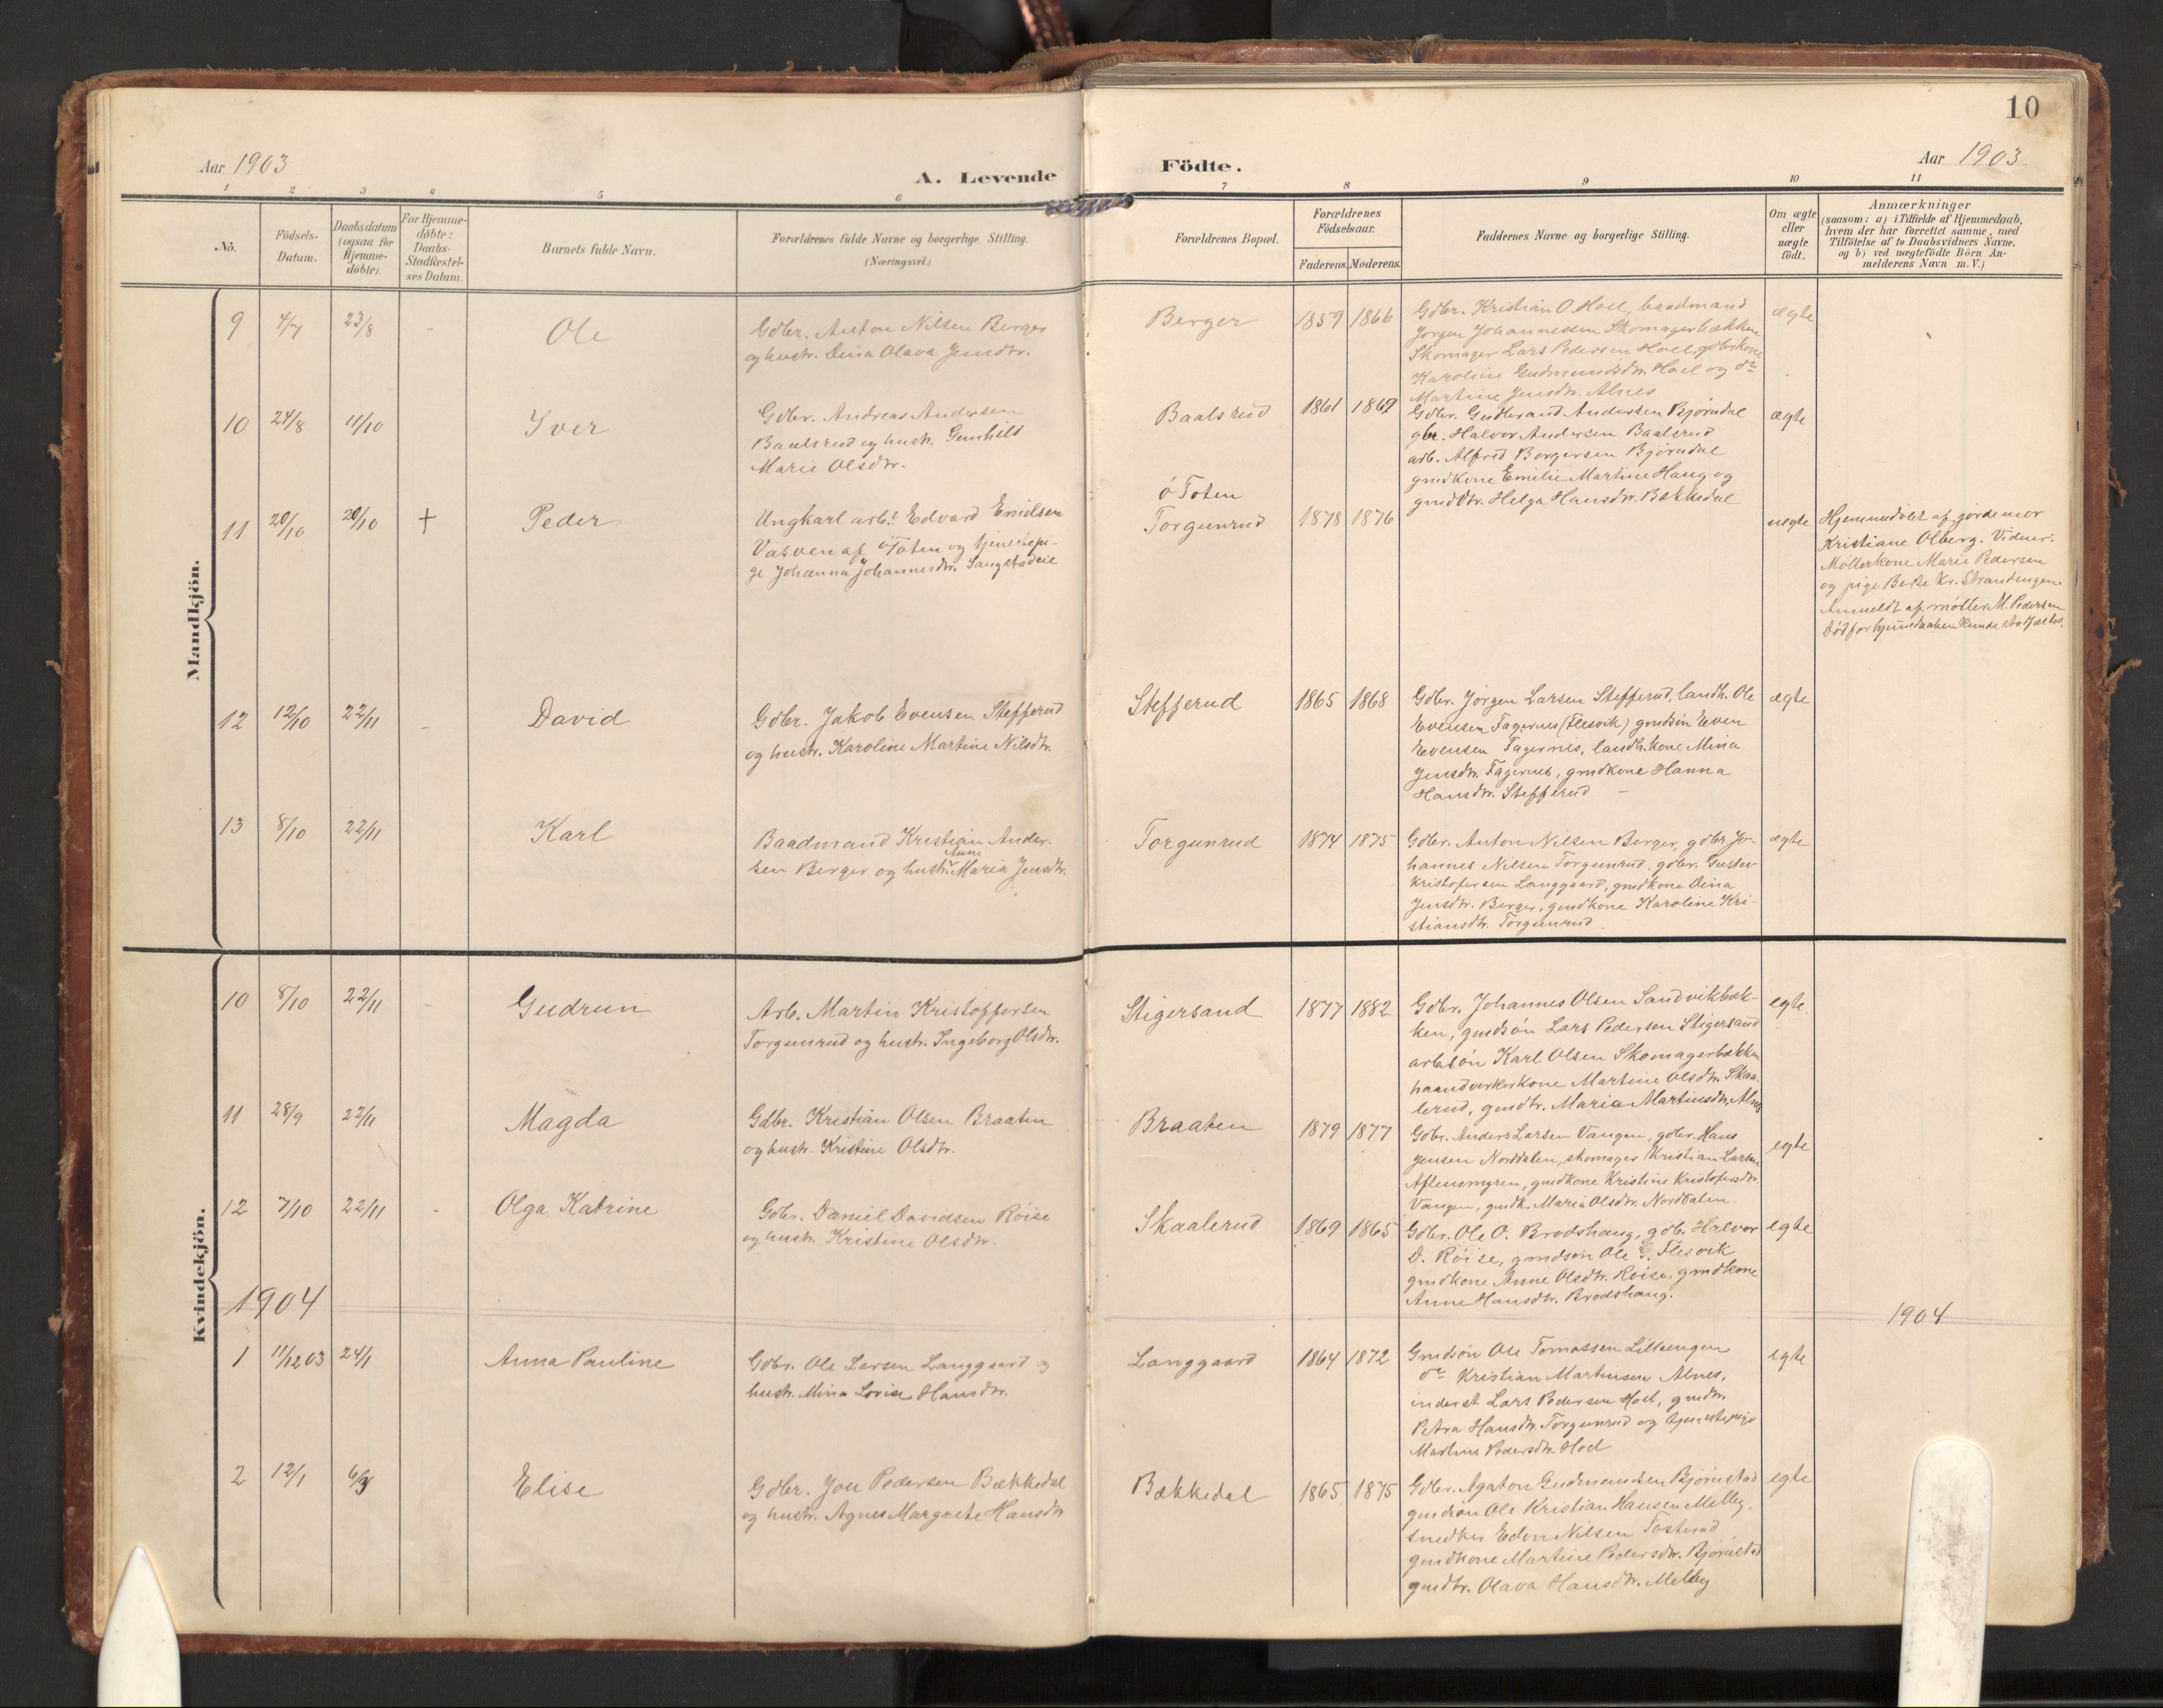 10
Aar 1903
A. Levende
Födte.
Aar 1903
1 2 3 4 5 6 7 8 9 10 11
Nö.
Födsels-
Datum.
Daabsdatum
(ogsaa for
Hjemme-
döbte).
For Hjemme-
döbte:
Daabs-
Stadfæstel-
ses Datum.
Barnets fulde Navn.
Forældrenes fulde Navne og borgerlige Stilling.
(Næringsvei.)
Forældrenes Bopæl.
Forældrenes
Födselsaar.
Faderens. Moderens.
Faddernes Navne og borgerlige Stilling.
Om ægte
eller
uægte
födt.
Anmærkninger
(saasom: a) i Tilfælde af Hjemmedaab,
hvem der har forrettet samme, med
Tilföielse af to Daabsvidners Navne,
og b) ved uægtefödte Börn An-
melderens Navn m. V.)
Mandkjön.
9 4/7 23/8 - Ole
Gdbr. Anton Nilsen Berger
og hustr. Dina Olava Jensdtr.
Berger 1859 1866
Gdbr. Kristian O. Hoel, baadmand
Jørgen Johannessen Skomagerbækken
Skomager Lars Pedersen Hoel, gdbrkone
Karoline Gudmundsdtr. Hoel og do
Martine Jensdtr. Alnes
ægte
10 24/8 11/10 Iver
Gdbr. Andreas Andersen
Baalsrud og hustr. Gunhild
Marie Olsdtr.
Baalsrud 1861 1869
Gdbr. Gudbrand Andersen Bjørndal
gbr. Halvor Andersen Baalsrud
arb. Alfred Borgersen Bjørndal
gmdkone Emilie Martine Haug og
gmddtr. Helga Hansdtr. Bækkedal
ægte
11 20/10 20/10 + Peder
Ungkarl arb. Edvard Emilsen
af ö Toten og tjenestepi-
ge Johanna Johannesdtr. Sangstadeie
ö Toten
Torgunrud 1878 1876
uegte
Hjemmedøbt af gjordemor
Kristiane Olberg. Vidner:
Møllerkone Marie Pedersen
og pige Berte Kr. Strandengen.
Anmeldt af møller M. Pedersen
Død før hjemmedaaben kunde stadfæstes.
12 12/10 22/11 - David
Gdbr. Jakob Evensen Stefferud
og hustr. Karoline Martine Nilsdtr.
Stefferud 1865 1868
Gdbr. Jørgen Larsen Stefferud, landh. Ole
Evensen Fagernes (Flesvik) gmdsøn Even
Evensen Fagernes, landh. kone Mina
Jensdtr. Fagernes, gmdkone Hanna
Hansdtr. Stefferud -
ægte
13 8/10 22/11 Karl
Baadmand Kristian Ander-
sen Berger og hustr. Anne Maria Jensdtr.
Torgunrud 1874 1875
Gdbr. Anton Nilsen Berger, gdbr Jo-
hannes Nilsen Torgunrud, gdbr. Gustav
Kristofersen Langgaard, gmdkone Dina
Jensdtr. Berger, gmdkone Karoline Kri-
stiansdtr. Torgunrud
ægte
Kvindekjön.
10 8/10 22/11 - Gudrun
Arb. Martin Kristoffersen
Torgunrud og hustr. Ingeborg Olsdtr.
Stigersand 1877 1882
Gdbr. Johannes Olsen Sandvikbæk-
ken, gmdsøn Lars Pedersen Stigersand
arbsøn Karl Olsen Skomagerbækken
haandverkerkone Martine Olsdtr. Skaa-
lerud, gmdtr. Maria Martinsdtr. Alnes
egte.
11 28/9 22/11 Magda
Gdbr. Kristian Olsen Braaten
og hustr. Kristine Olsdtr.
Braaten 1879 1877
Gdbr. Anders Larsen Vangen, gdbr. Hans
Jensen Norddalen, skomager Kristian Larsen
Aftensmyren, gmdkone Kristine Kristofersdtr.
Vangen, gmdk. Maria Olsdtr. Norddalen.
egte
12 7/10 22/11 - Olga Katrine
Gdbr. Daniel Davidsen Røise
og hustr. Kristine Olsdtr.
Skaalerud 1869 1865
Gdbr. Ole O. Brodshaug, gdb. Halvor
D. Røise, gmdsøn Ole G. Flesvik
gmdkone Anne Olsdtr. Røise, gmdkone
Anne Hansdtr. Brodshaug.
egte
1904
1904
1 11/12 03 24/1 Anna Pauline
Gdbr. Ole Larsen Langgaard og
hustr. Mina Lovise Hansdtr.
Langgaard 1864 1872
Gmdsøn Ole Tomassen Lillengen
do Kristian Martinsen Alnes,
inderst Lars Pedersen Hoel, gmdtr.
Petra Hansdtr. Torgunrud og tjenestepige
Martine Pedersdtr. Hoel
egte
2 12/1 6/3 Elise
Gdbr. Jon Pedersen Bækkedal
og hustr. Agnes Margrete Hansdtr
Bækkedal 1865 1875
Gdbr. Agaton Gudmundsen Bjørnstad
gmdsøn Ole Kristian Hansen Melby.
snedker Edvin Nilsen Tosterud
gmdkone Martine Pedersdtr. Bjørnstad
gmdtr. Olava Hansdtr. Melby
egte